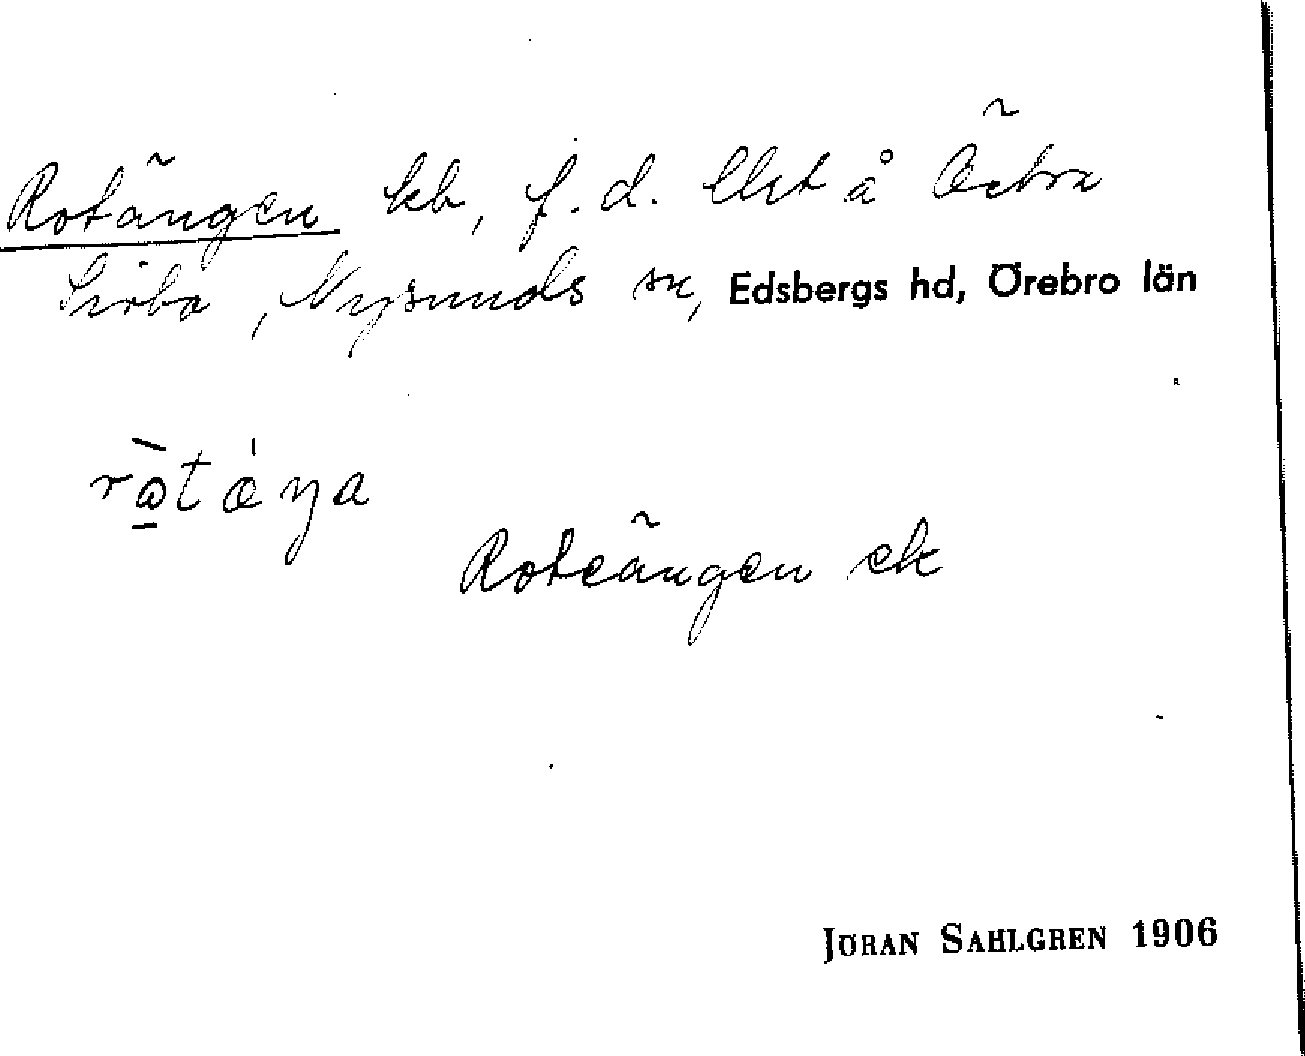 Rotängen lkb, f. d. Ust å Östra
Sirba, Nysunds sn, Edsbergs hd, Örebro län
ròt ǽŋa
Roteängen ek
JÖRAN SAHLGREN 1906